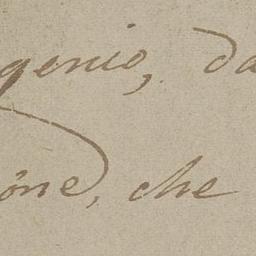 genio, da
one, che